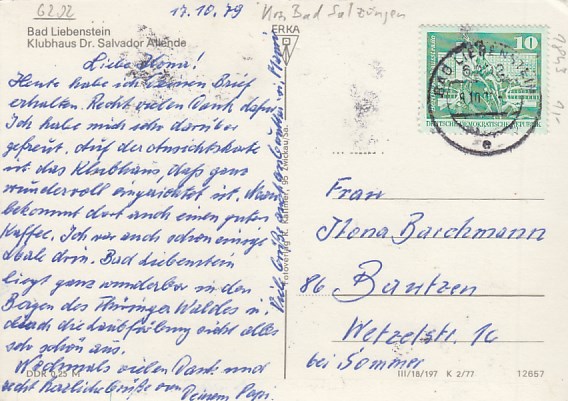 6202
17.10.79
Krs. Bad Salzungen
Bad Liebenstein
Klubhaus Dr. Salvador Allende
ERKA
Liebe Ilona!
Heute habe ich deinen Brief
erhalten. Recht vielen Dank dafür.
Ich habe mich sehr darüber
gefreut. Auf der Ansichtskarte
ist das Klubhaus, daß ganz
wundervoll eingerichtet ist. Man
bekommt dort auch einen guten
Kaffee. Ich war auch schon einige
Male drin. Bad Liebenstein
liegt ganz wunderbar in den
Bergen des Thüringer Waldes u.
durch die Laubfärbung sieht alles
sehr schön aus.
Nochmals vielen Dank und
recht herzliche Grüße von
Deinem Papi.
Viele Grüße auch
Fotoverlag K. Kallmer, 95 Zwickau/Sa.
10
DEUTSCHE DEMOKRATISCHE REPUBLIK
BAD LIEBENSTEIN
e
Frau
Ilona Barchmann
86 Bautzen
Wetzelstr. 1c
bei Sommer
DDR 0,25 M
III/18/197 K 2/77
12657